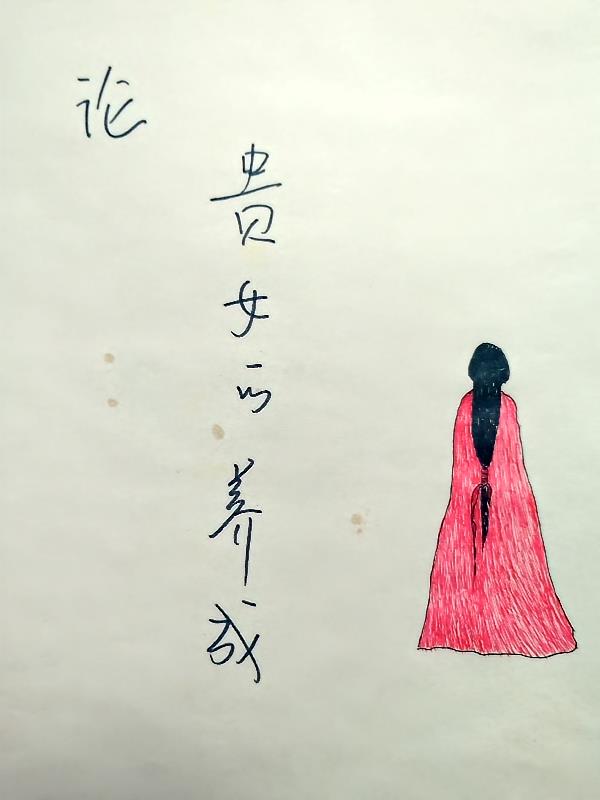 论
贵女的养成